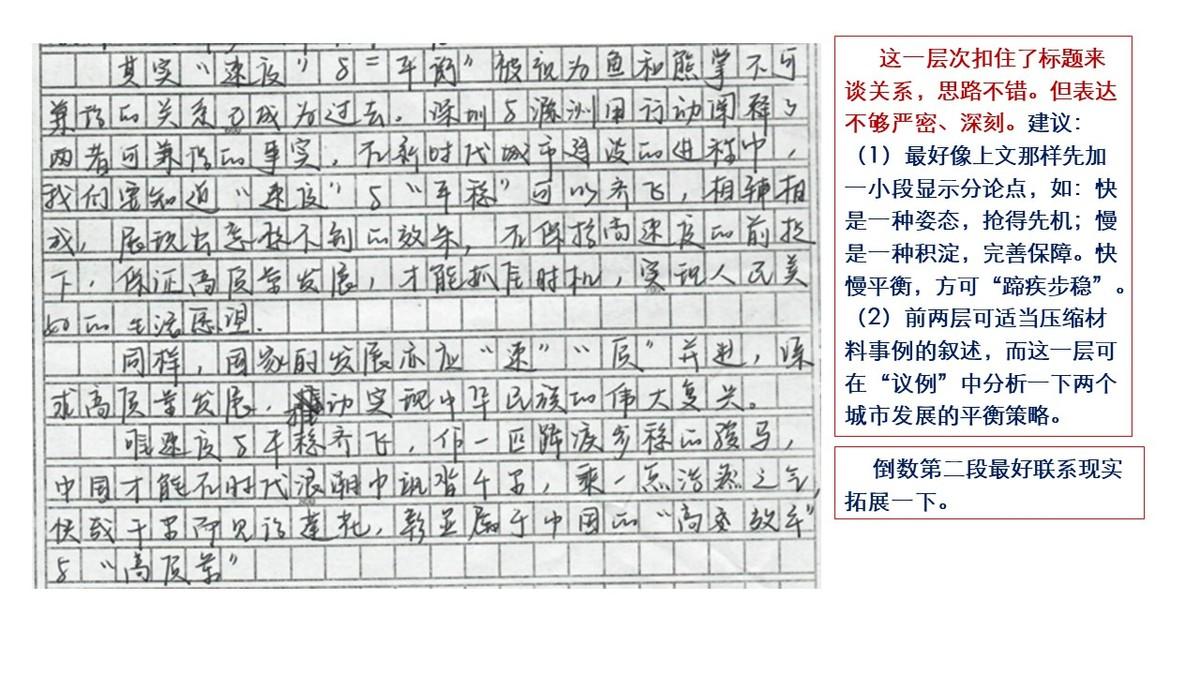 其实“速度”与“平衡”被视为鱼和熊掌不可
兼得的关系已成为过去。深圳与漉洲用行动阐释了
两者可兼得的事实，在新时代城市建设的进程中，
我们要知道“速度”与“平稳”可以齐飞，相辅相
成，展现出意想不到的效果，在保持高速度的前提
下，保证高质量发展，才能抓住时机，实现人民美
好的生活愿望。
同样，国家的发展亦应“速”“质”并进，深
求高质量发展，推动实现中华民族的伟大复兴。
唯速度与平稳齐飞，作一匹蹄疾步稳的骏马，
中国才能在时代浪潮中
乘一点浩然之气，
快哉千里
彰显属于中国的“高效率”
与“高质量”
这一层次扣住了标题来
谈关系，思路不错。但表达
不够严密、深刻。建议：
（1）最好像上文那样先加
一小段显示分论点，如：快
是一种姿态，抢得先机；慢
是一种积淀，完善保障。快
慢平衡，方可“蹄疾步稳”。
（2）前两层可适当压缩材
料事例的叙述，而这一层可
在“议例”中分析一下两个
城市发展的平衡策略。
倒数第二段最好联系现实
拓展一下。